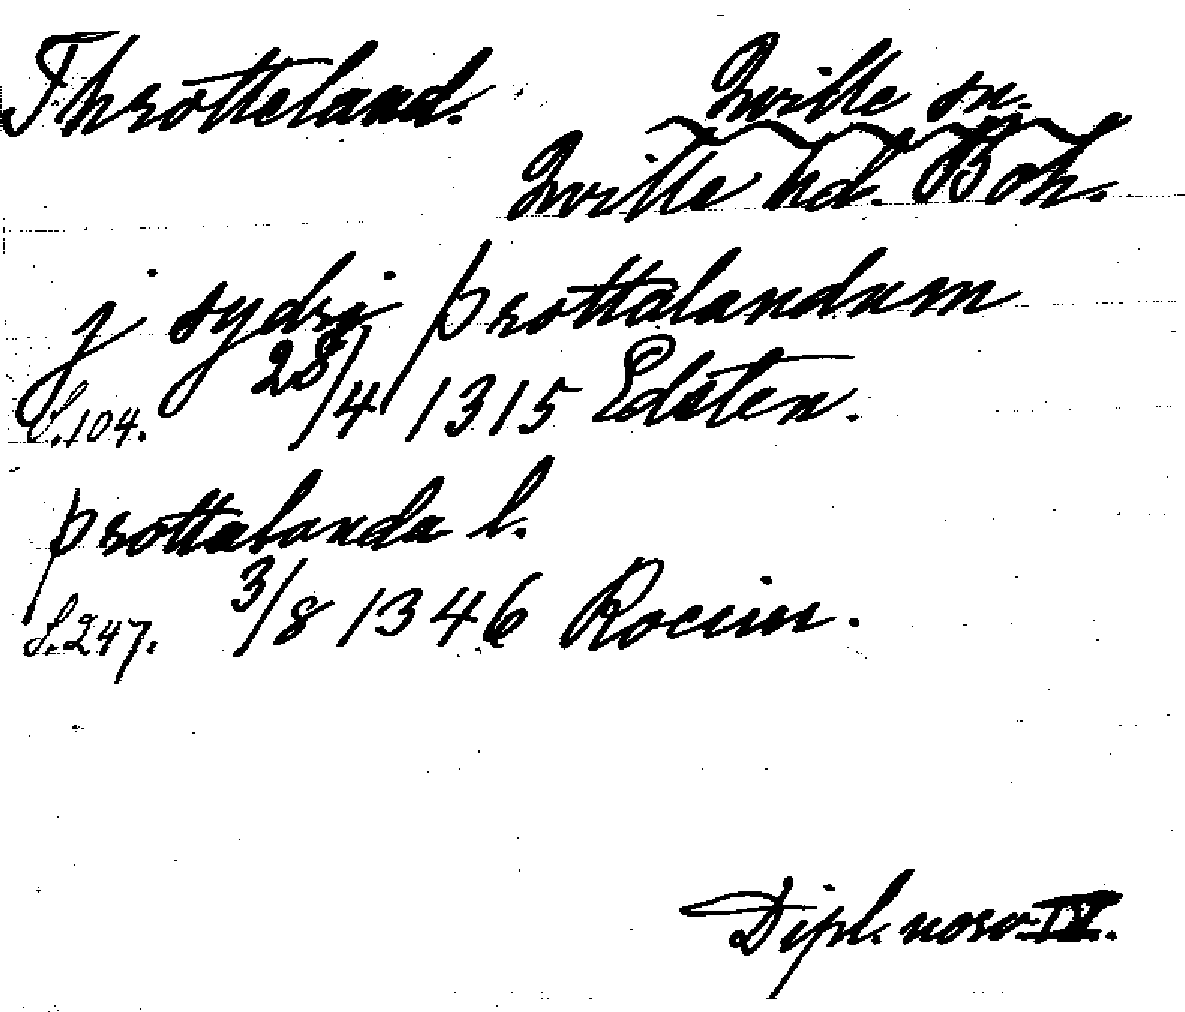 Throtteland. Qville sn.
Qville hd. Boh.
j sydri þrottalandum
S. 104. 28/4 1315 Edsten.
þrottalanda l.
S. 247. 3/8 1346
Dipl. norv. IV.